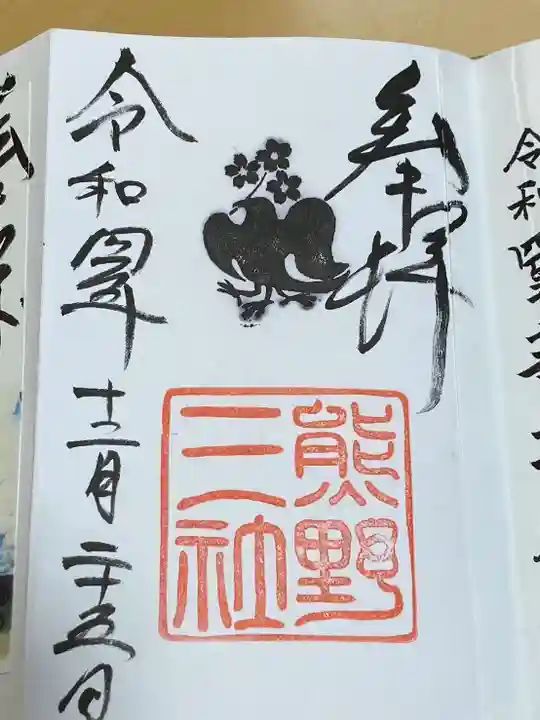 奉拝
熊野
三社
令和四年
十二月二十五日
令和